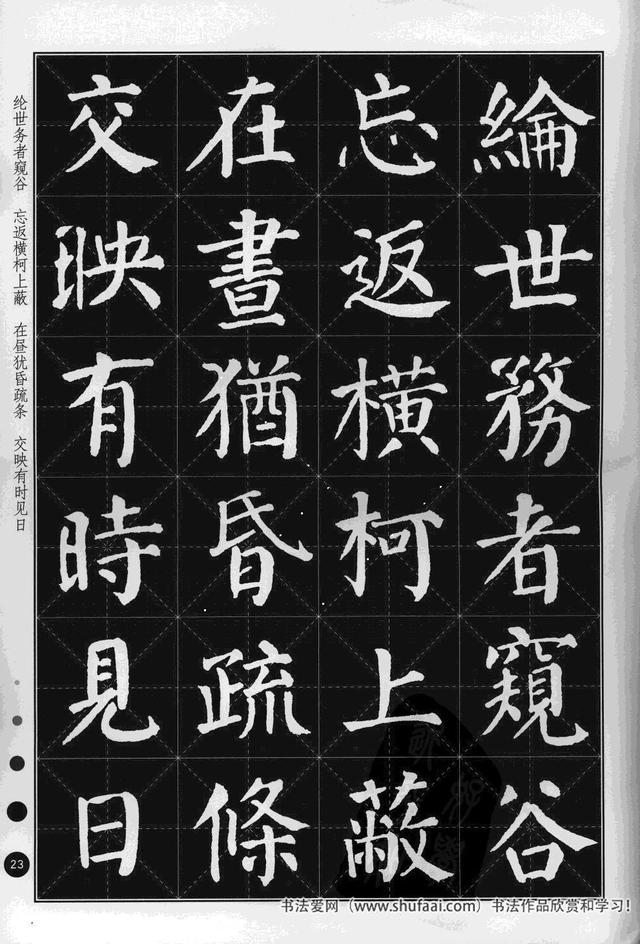 綸世務者窺谷
忘返橫柯上蔽
在晝猶昏疏條
交映有時見日
纶世务者窥谷 忘返横柯上蔽 在昼犹昏疏条 交映有时见日
23
书法爱网（www.shufaai.com）书法作品欣赏和学习！